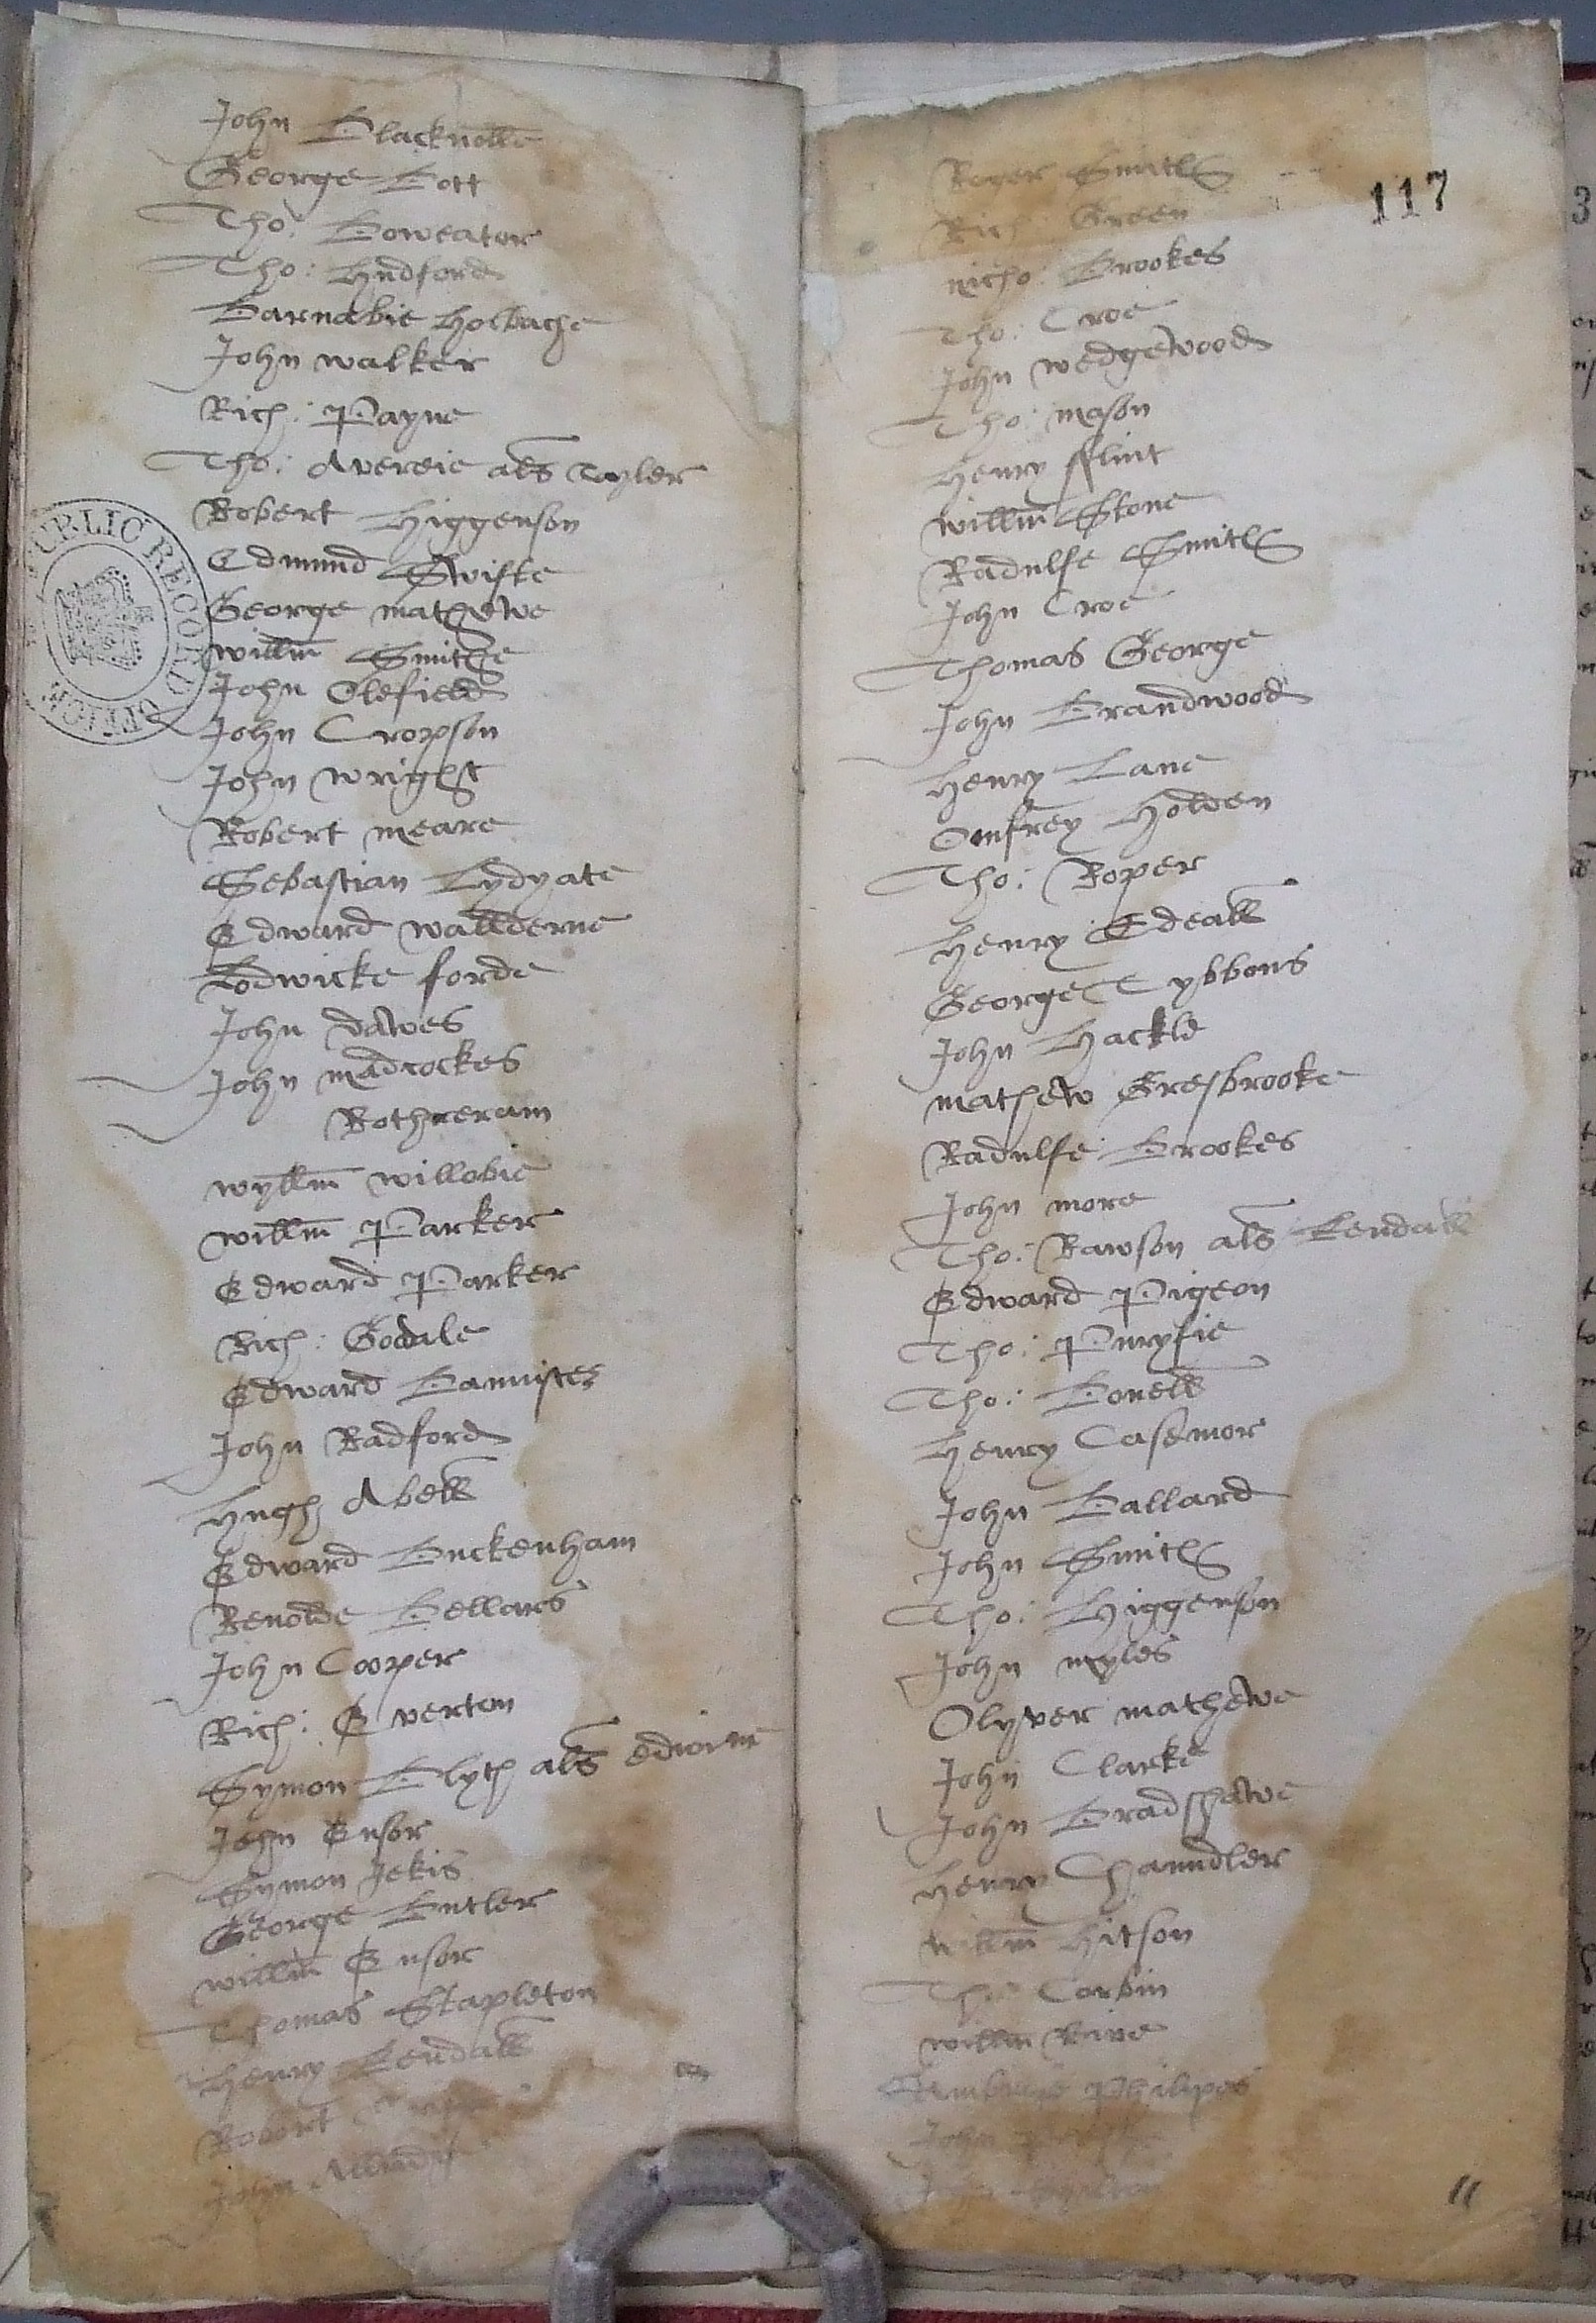 John Blacknolle
George Bott
Tho: Boweator
Tho: Hyndford
Barnabie Holbache
John walker
Rich: Payne
Tho: Avereie als Tayler
Robert Higgenson
Edmund Swifte
George mathewe
willm Smithe
John Olefield
John Cropson
John wright
Robert meare
Sebastian Lydyate
Edward wallderne
Lodwicke forde
John dawes
John madcockes
Rothreram
wyllm willobie
willm Parker
Edward Parker
Rich: Godale
Edward Bannister
John Radford
Hugh Abell
Edward Buckenham
Renolde Bellars
John Cooper
Rich: Everton
Symon Blyth als edwine
John Ensor
Symon Jekis
George Butler
willm Ensor
Thomas Stapleton
Henry Kendall
Robert
John
PUBLIC RECORD OFFICE
117
Roger Smith
Rich: Green
nicho: Brookes
Tho: Croe
John wedgewood
Tho: mason
Henry fflint
willm Stone
Radulfe Smith
John Croe
Thomas George
John Brandwood
Henry Lane
Omfrey Holden
Tho: Roper
Henry Edeall
George Tybbons
John Hackle
mathew Gresbrooke
Radulfe Brookes
John more
Tho: Rawson als Kendall
Edward Pigeon
Tho: Puryfie
Tho: Bonell
Henry Casemor
John Ballard
John Smith
Tho: Higgenson
John myles
Olyver mathewe
John Clarke
John Bradshawe
Henry Chaundler
willm Hitson
Tho: Corbin
willm
Ambrose Philipes
John
John